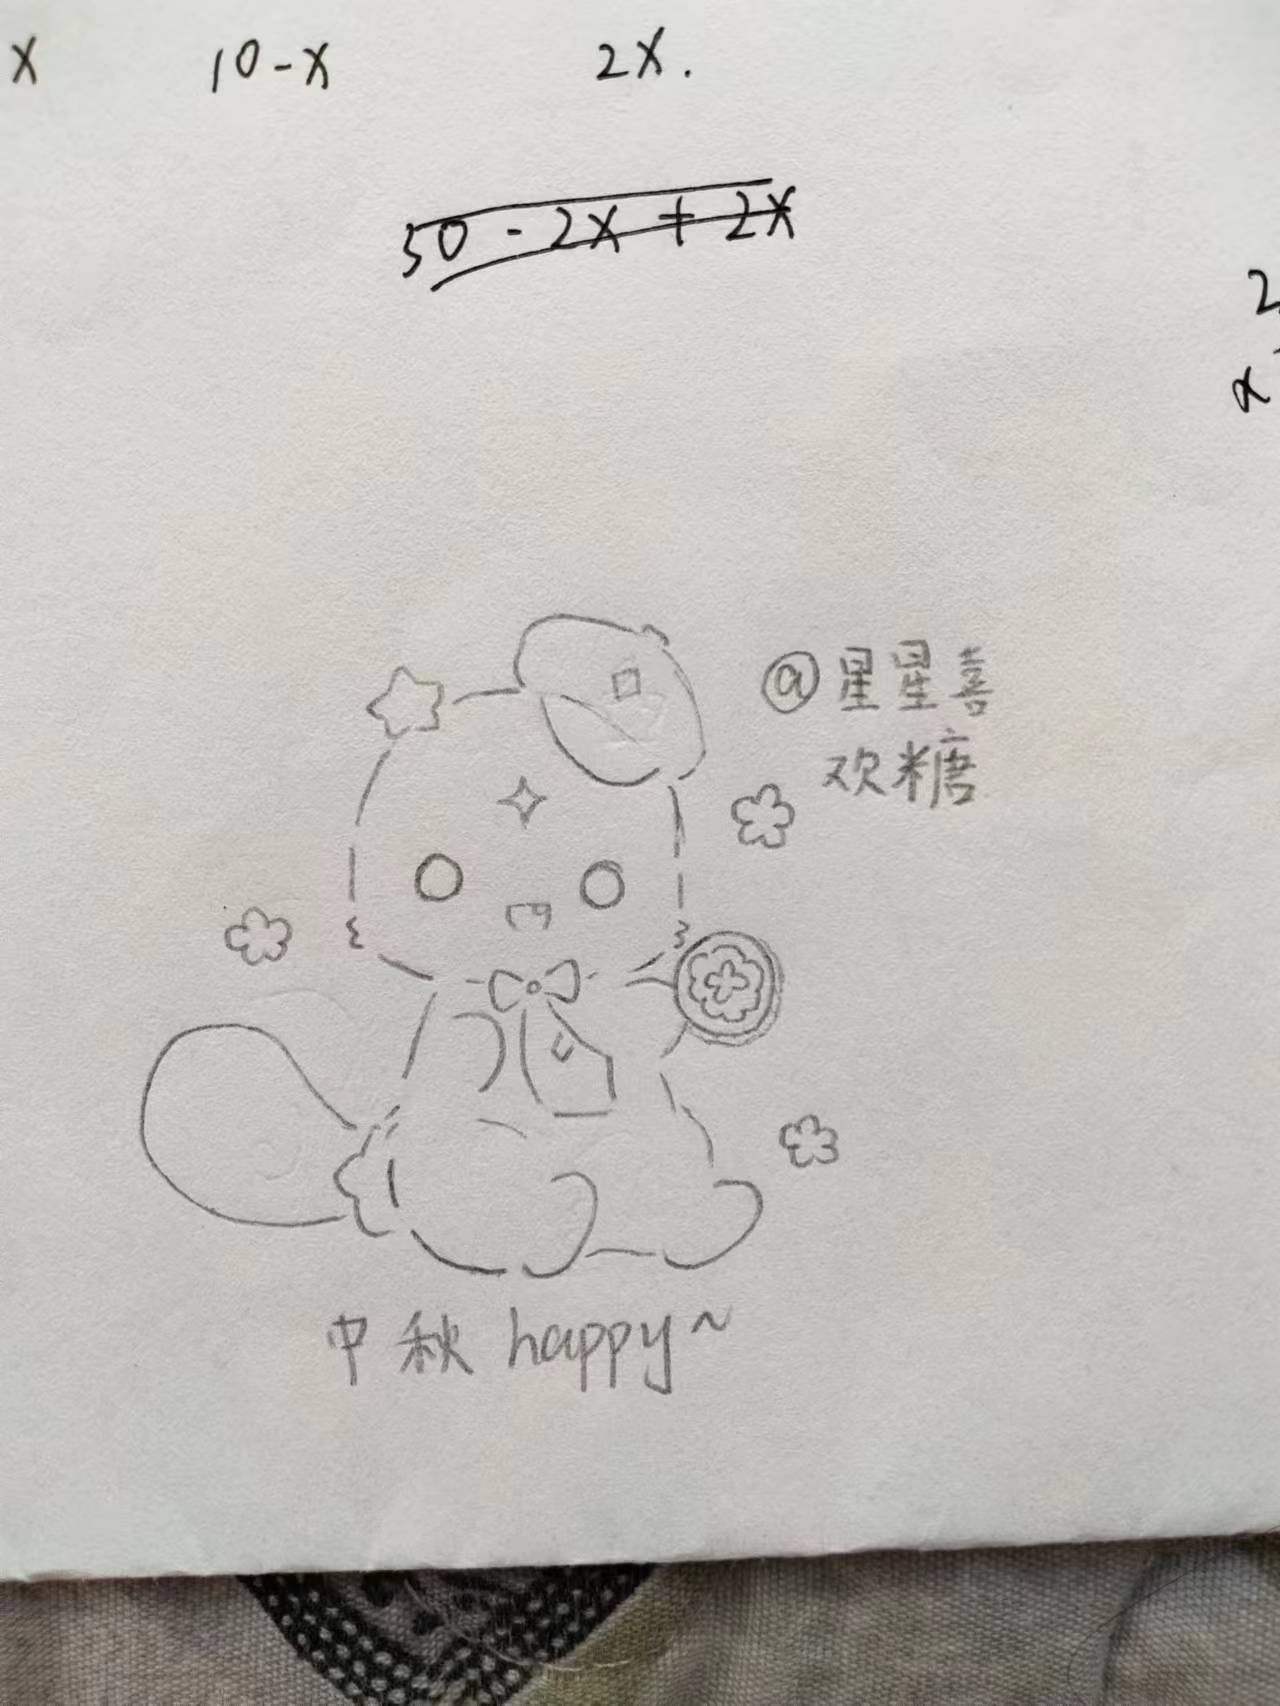 x 10-x 2x.
50-2x+2x
2
x
@星星喜
欢糖
中秋 happy~